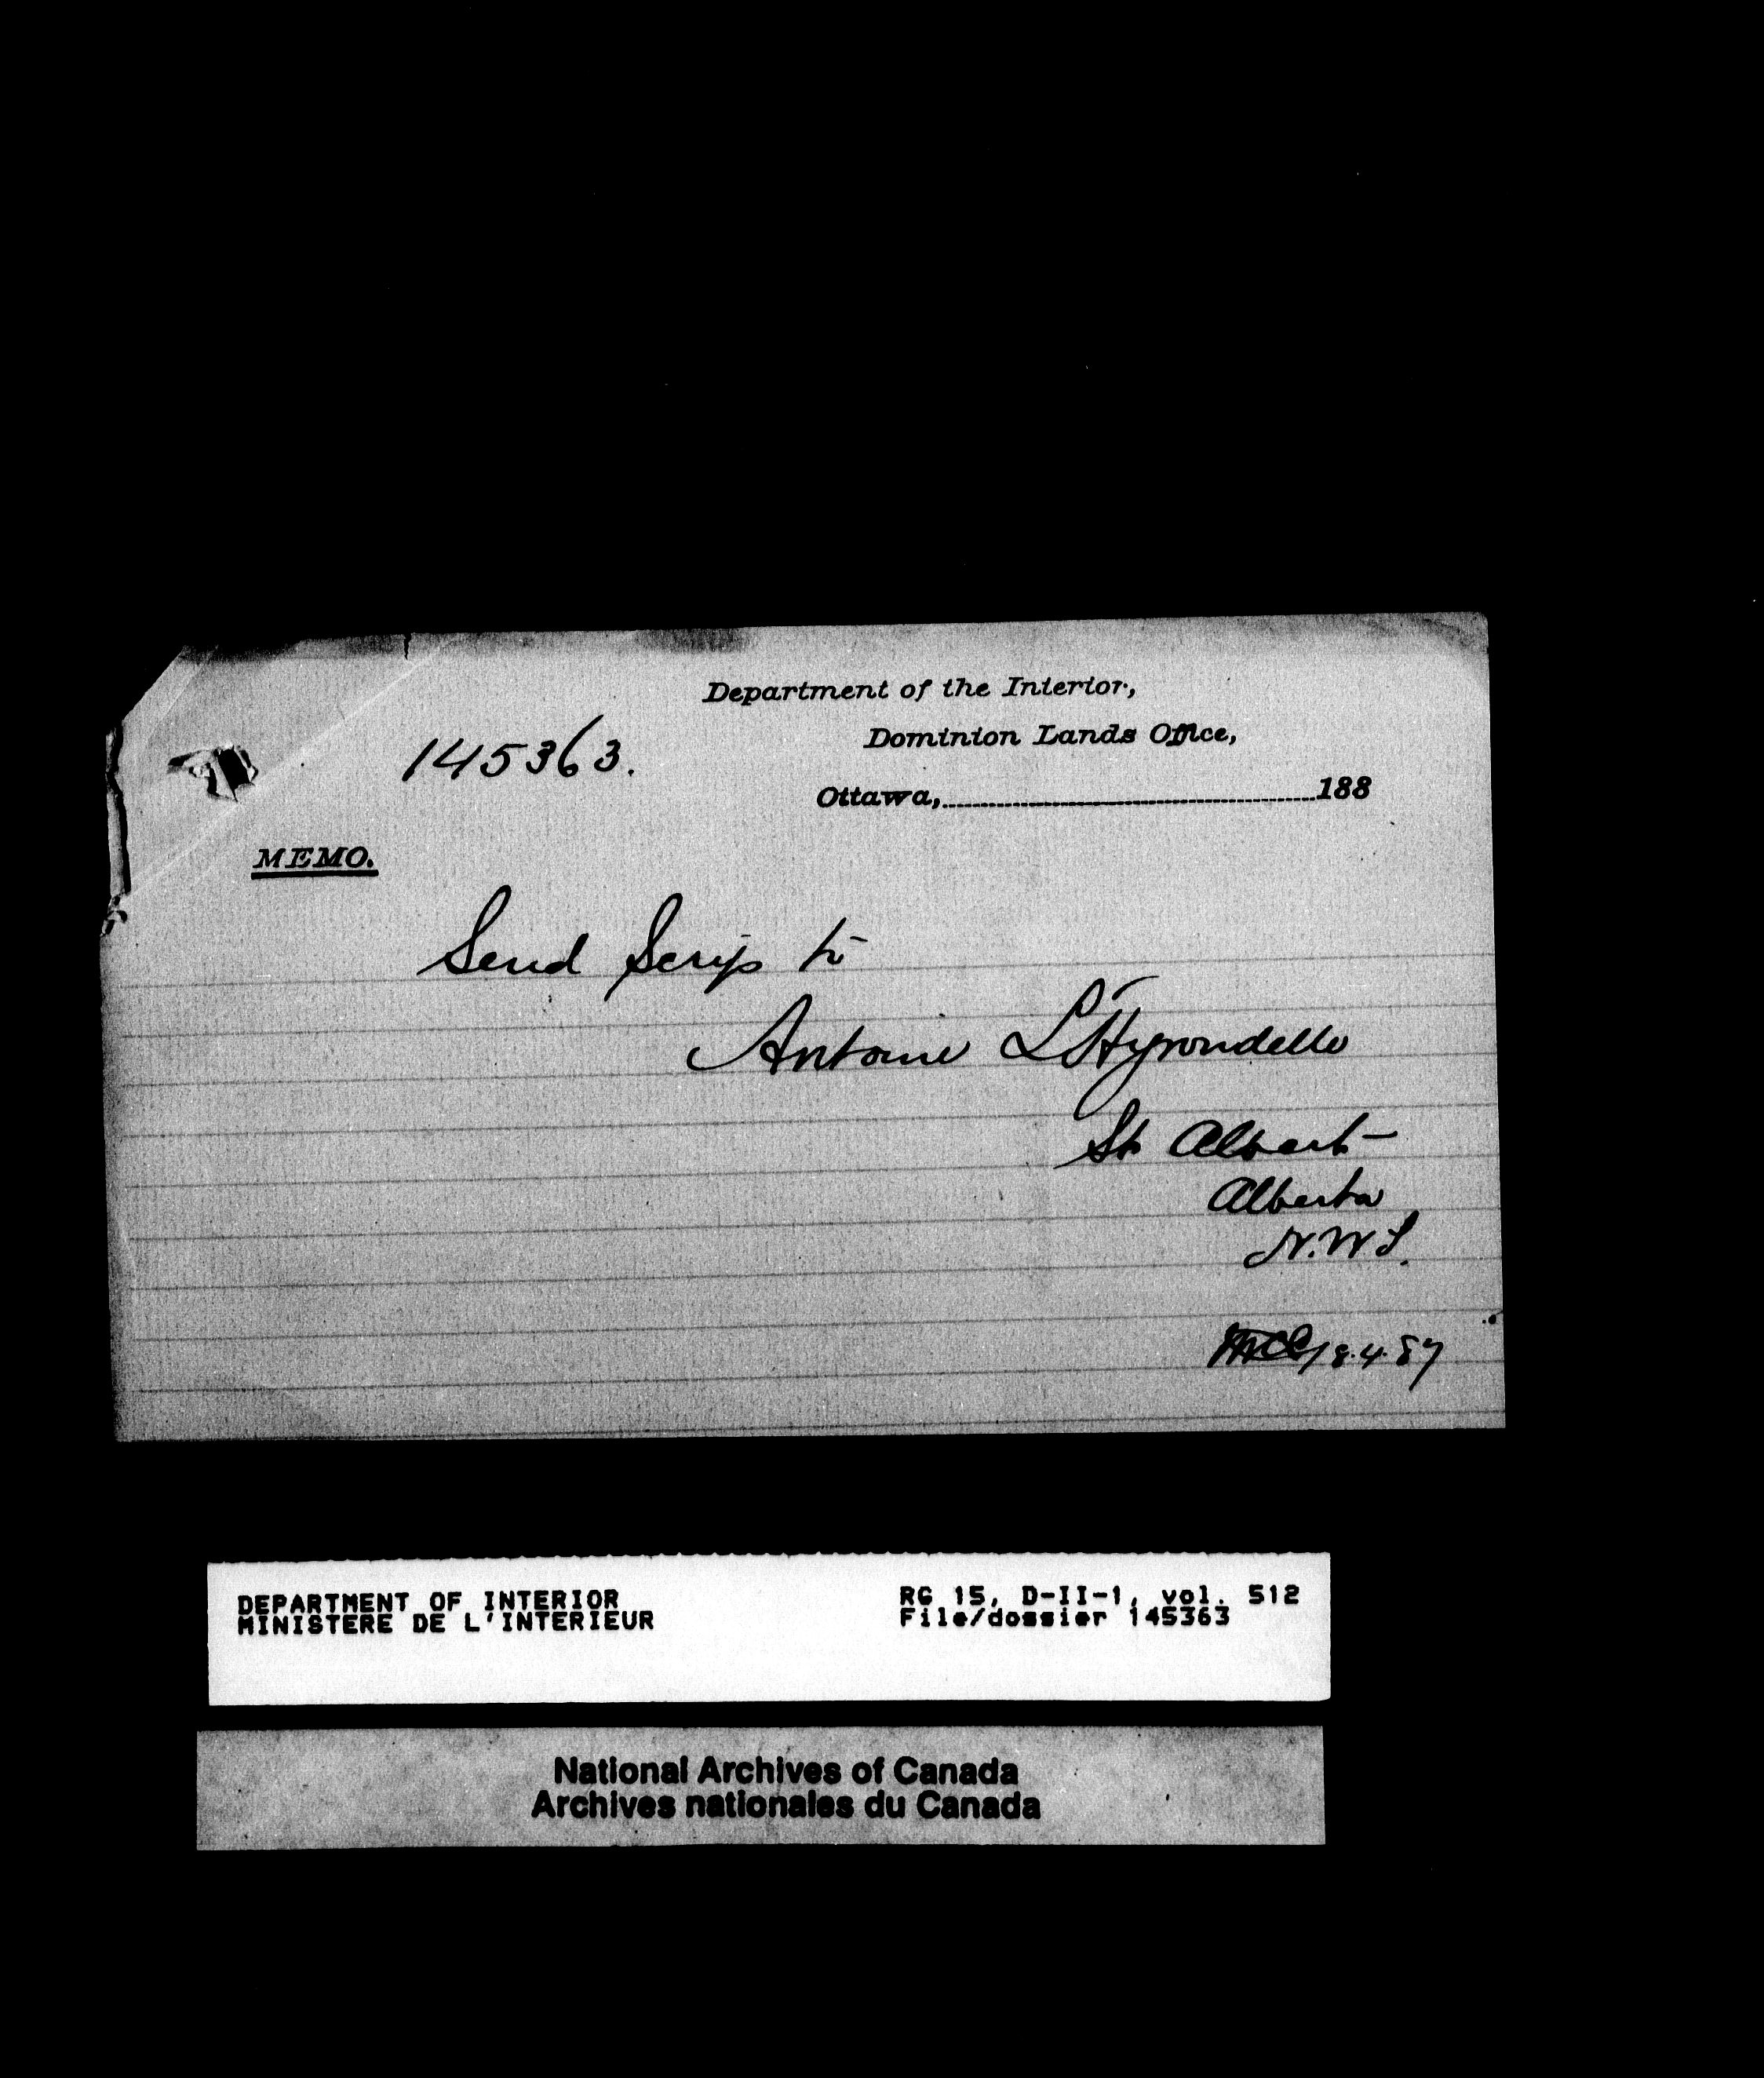 Department of the Interior,
145363.
Dominion Lands Office,
Ottawa, 188
MEMO.
Send Scrip to
Antoine L'Hyrondelle
St Albert
Alberta
N.W.T.
18.4.87
DEPARTMENT OF INTERIOR
MINISTERE DE L'INTERIEUR
RG 15, D-II-1, vol. 512
File/dossier 145363
National Archives of Canada
Archives nationales du Canada